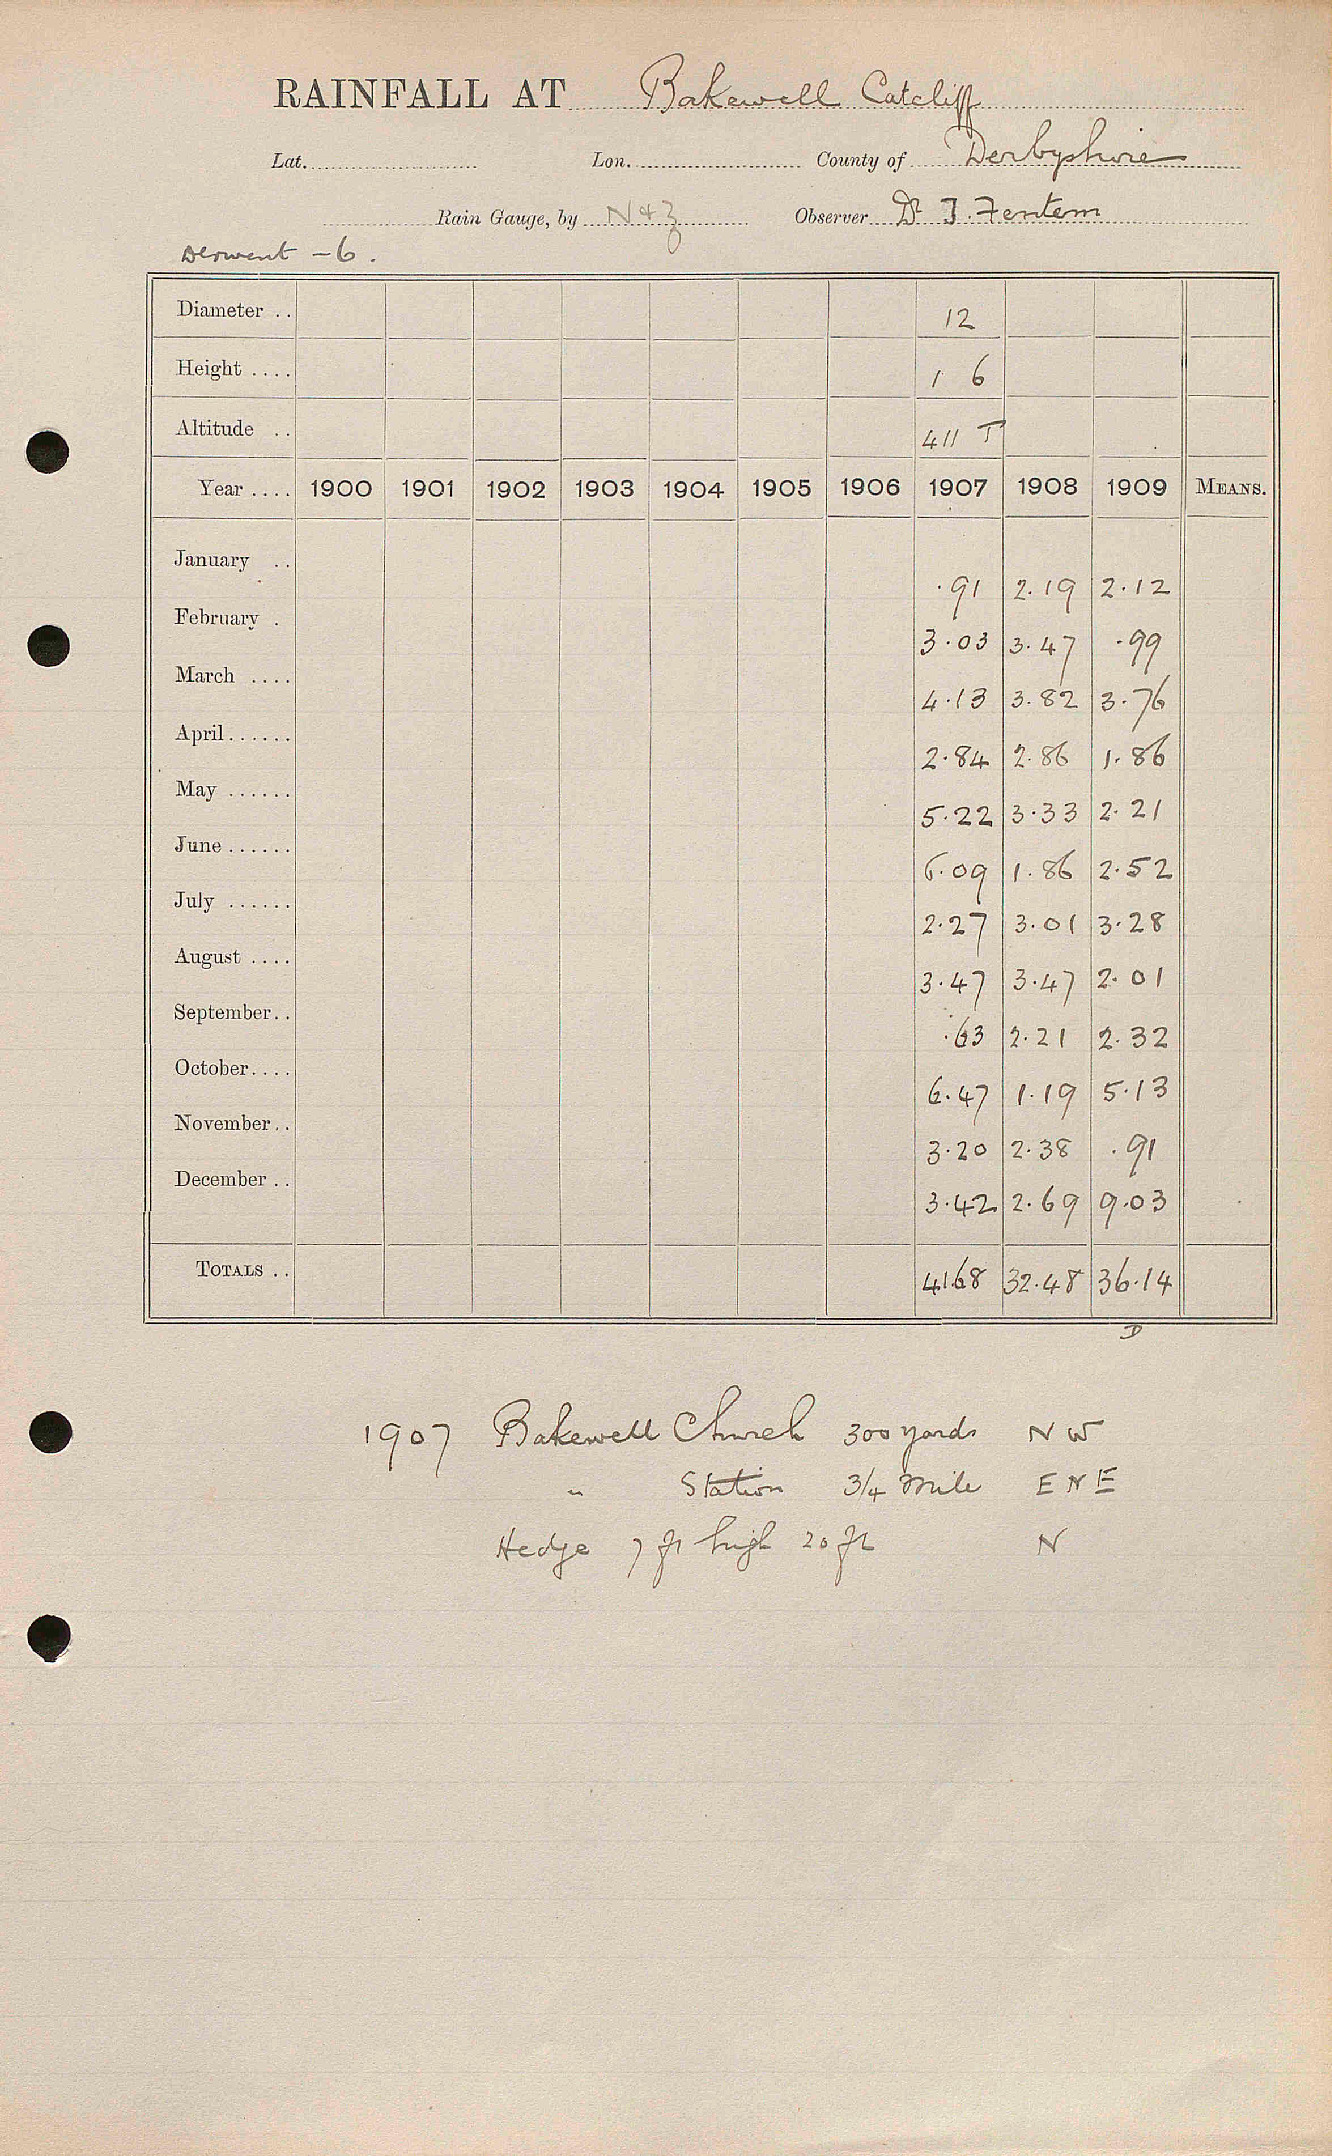 RAINFALL AT Bakewell Catcliff
Lat. Lon. County of Derbyshire
Rain Gauge, by N & Z Observer Dr T. Fentem
Derwent - 6.
Diameter .. 12
Height .... 1 6
Altitude .. 411 T
Year .... 1900 1901 1902 1903 1904 1905 1906 1907 1908 1909 MEANS.
January .. .91 2.19 2.12
February . 3.03 3.47 .99
March .... 4.13 3.82 3.76
April...... 2.84 2.86 1.86
May ...... 5.22 3.33 2.21
June ...... 6.09 1.86 2.52
July ...... 2.27 3.01 3.28
August .... 3.47 3.47 2.01
September.. .63 2.21 2.32
October.... 6.47 1.19 5.13
November.. 3.20 2.38 .91
December .. 3.42 2.69 9.03
TOTALS .. 41.68 32.48 36.14
D
1907 Bakewell Church 300 yards NW
" Station 3/4 Mile ENE
Hedge 7 ft high 20 ft N